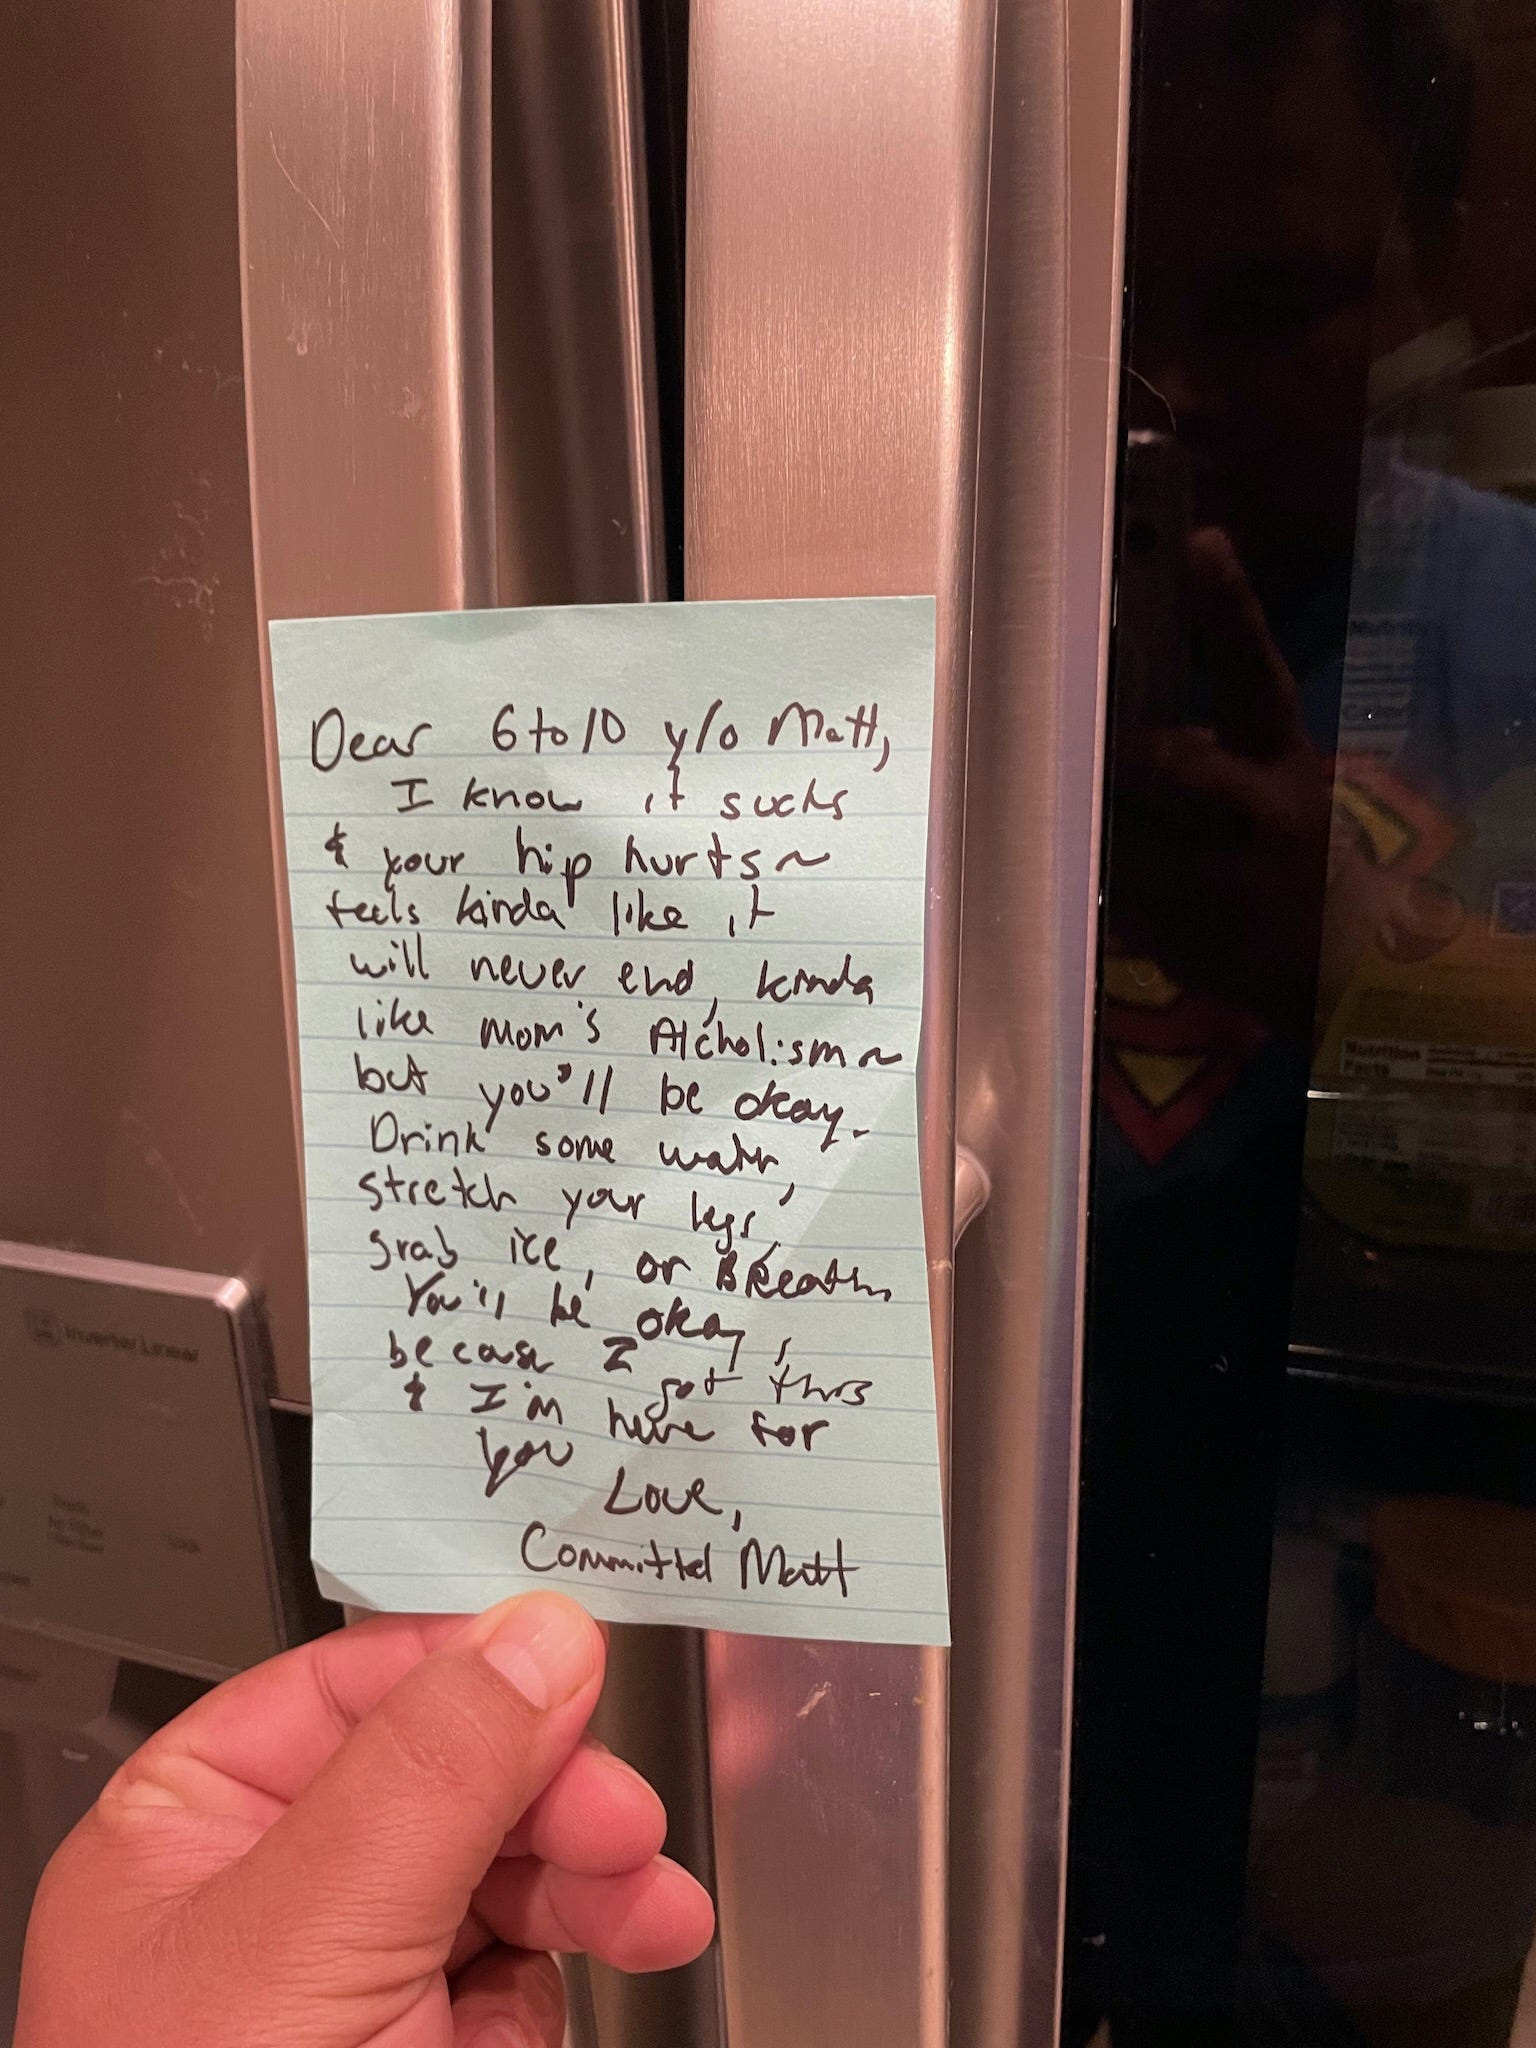 Dear 6 to 10 y/o Matt,
I know it sucks
& your hip hurts ~
feels kinda like it
will never end, kinda
like mom's Alcholism ~
but you'll be okay.
Drink some water,
stretch your legs,
grab ice, or Breathe
You'll be okay,
because I got this
& I'm here for
you
Love,
Committed Matt
Inverter Linear
Nutrition
Facts